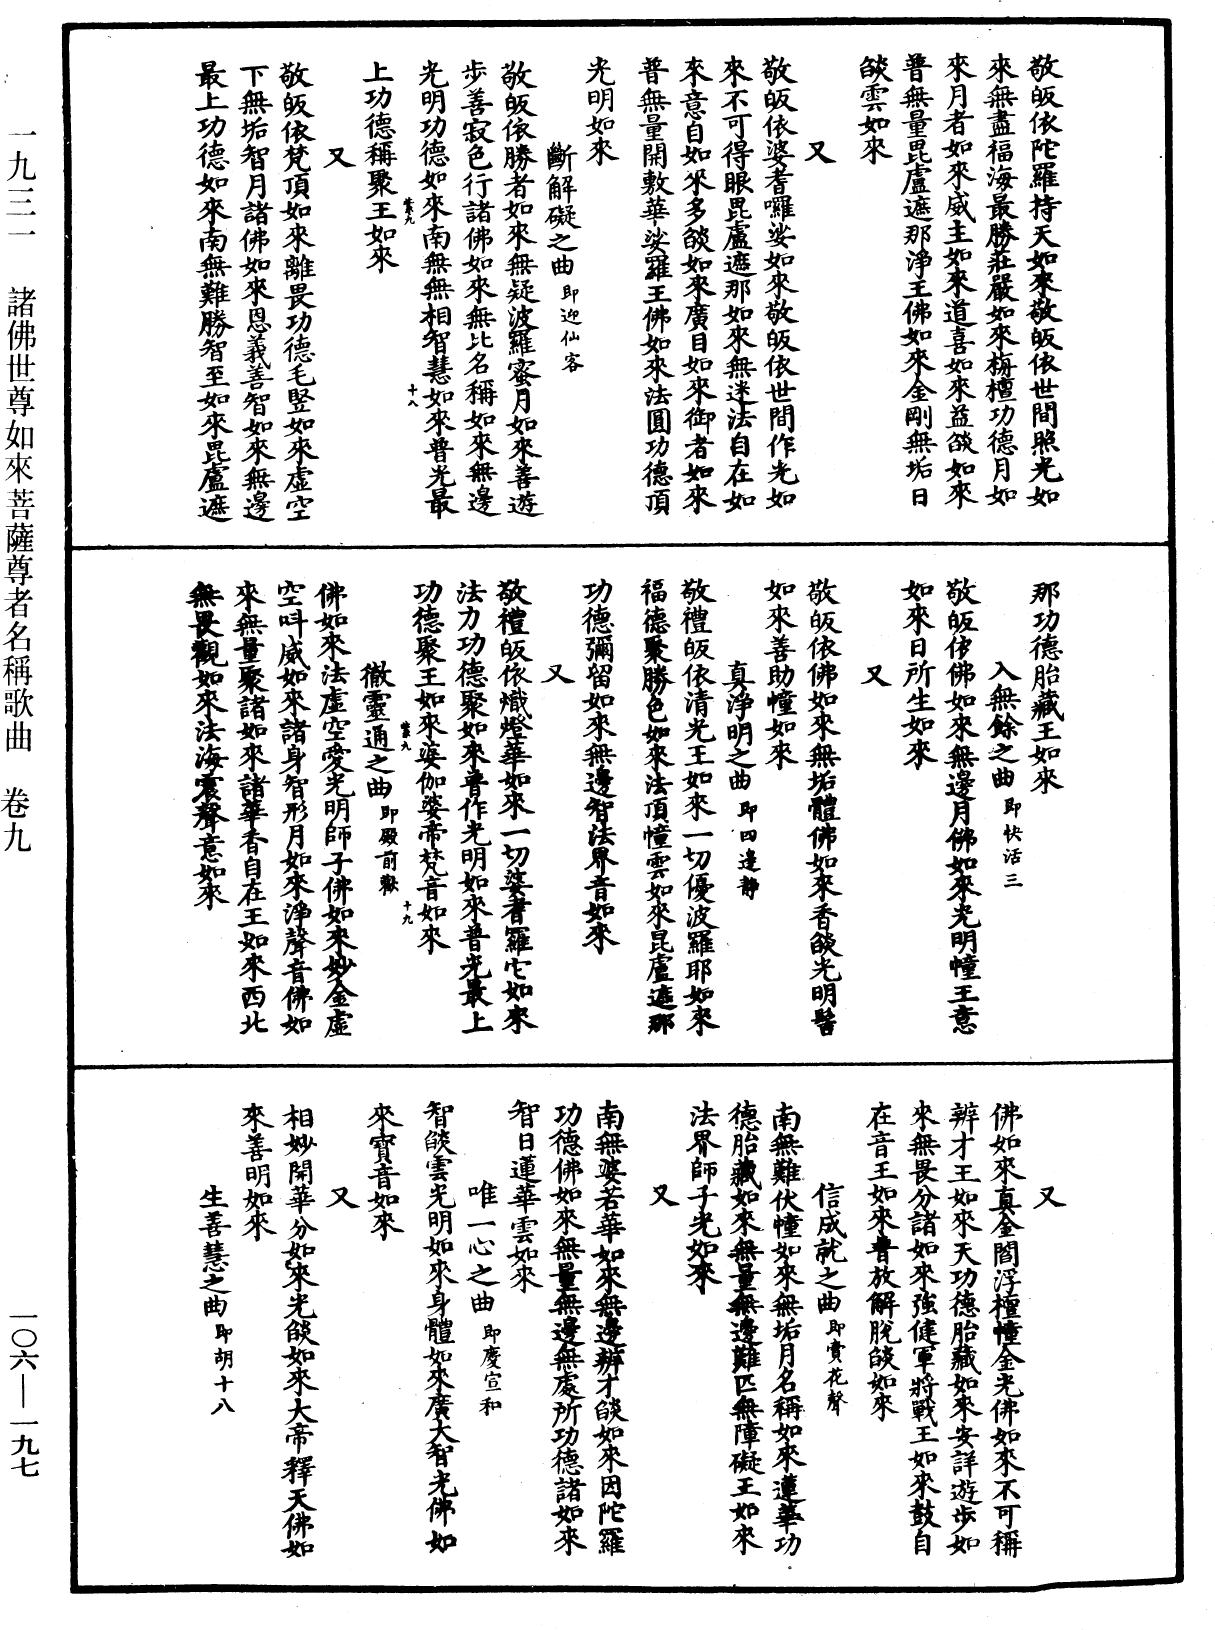 敬皈依陀羅持天如來敬皈依世間照光如
來無盡福海最勝莊嚴如來栴檀功德月如
來月者如來威主如來道喜如來益燄如來
普無量毘盧遮那淨王佛如來金剛無垢日
燄雲如來
又
敬皈依婆耆囉娑如來敬皈依世間作光如
來不可得眼毘盧遮那如來無迷法自在如
來意自如來多燄如來廣目如來御者如來
普無量開敷華娑羅王佛如來法圓功德頂
光明如來
斷解礙之曲 即迎仙客
敬皈依勝者如來無疑波羅蜜月如來善遊
步善寂色行諸佛如來無比名稱如來無邊
光明功德如來南無無相智慧如來普光最
紫九 十八
上功德稱聚王如來
又
敬皈依梵頂如來離畏功德毛豎如來虛空
下無垢智月諸佛如來恩義善智如來無邊
最上功德如來南無難勝智至如來毘盧遮
那功德胎藏王如來
入無餘之曲 即快活三
敬皈依佛如來無邊月佛如來光明幢王意
如來日所生如來
又
敬皈依佛如來無垢體佛如來香燄光明髻
如來善助幢如來
真淨明之曲 即四邊靜
敬禮皈依清光王如來一切優波羅耶如來
福德聚勝色如來法頂幢雲如來毘盧遮那
功德彌留如來無邊智法界音如來
又
敬禮皈依熾燈華如來一切婆耆羅它如來
法力功德聚如來普作光明如來普光最上
功德聚王如來婆伽婆帝梵音如來
紫九 十九
徹靈通之曲 即殿前歡
佛如來法虛空愛光明師子佛如來妙金虛
空吽威如來諸身智形月如來淨聲音佛如
來無量聚諸如來諸華香自在王如來西北
無畏觀如來法海震聲意如來
又
佛如來真金閻浮檀幢金光佛如來不可稱
辨才王如來天功德胎藏如來安詳遊步如
來無畏分諸如來強健軍將戰王如來鼓自
在音王如來普放解脫燄如來
信成就之曲 即賣花聲
南無難伏幢如來無垢月名稱如來蓮華功
德胎藏如來無量無邊難匹無障礙王如來
法界師子光如來
又
南無婆若華如來無邊辨才燄如來因陀羅
功德佛如來無量無邊無處所功德諸如來
智日蓮華雲如來
唯一心之曲 即慶宣和
智燄雲光明如來身體如來廣大智光佛如
來寶音如來
又
相妙開華分如來光燄如來大帝釋天佛如
來善明如來
生善慧之曲 即胡十八
一九三一 諸佛世尊如來菩薩尊者名稱歌曲 卷九
一〇六—一九七